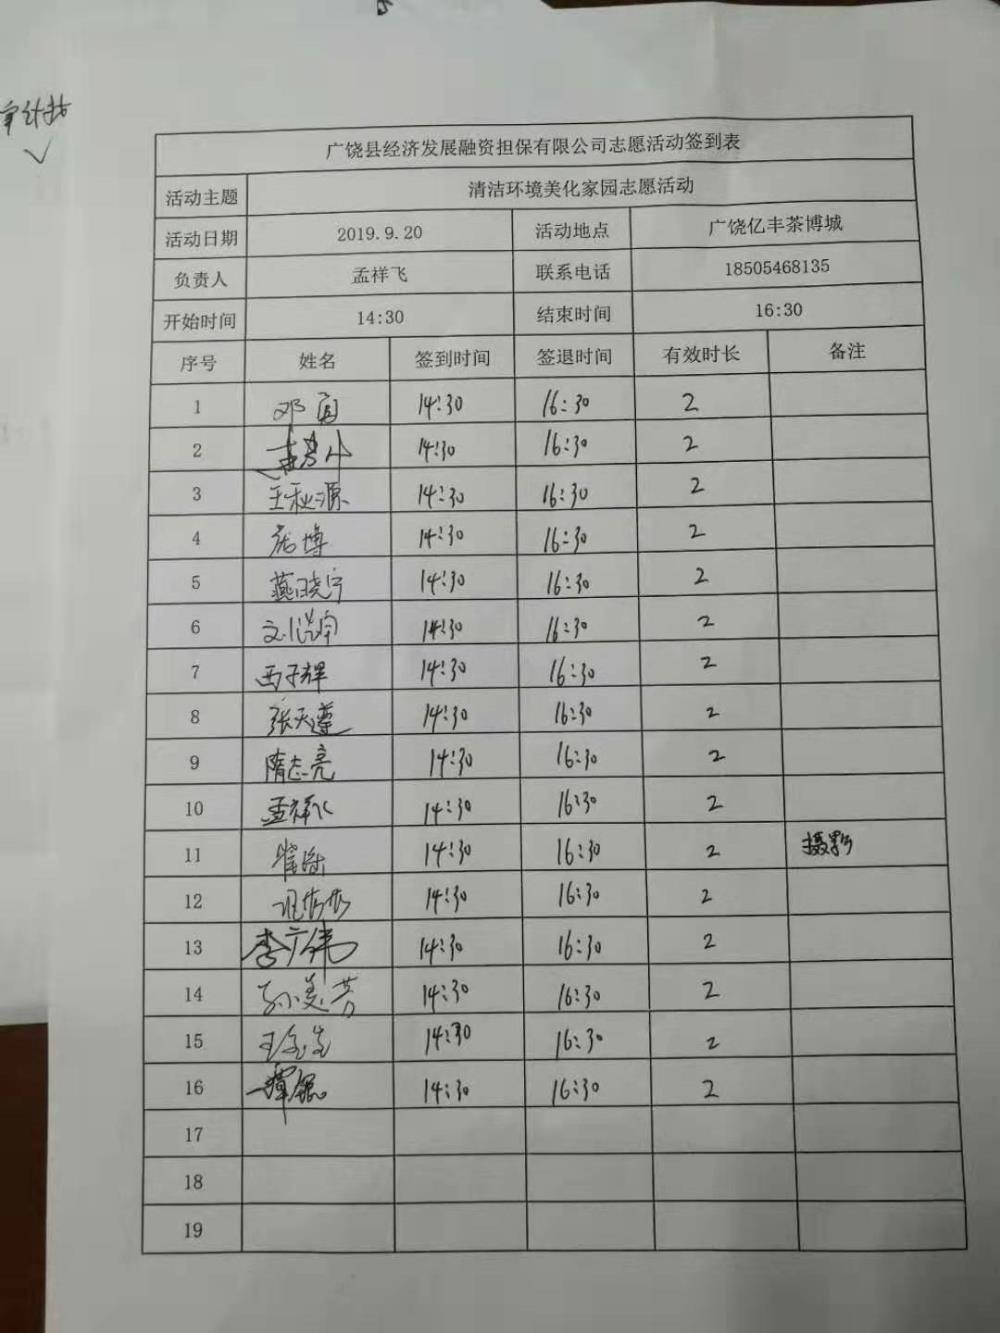 广饶县经济发展融资担保有限公司志愿活动签到表
活动主题 清洁环境美化家园志愿活动
活动日期 2019.9.20 活动地点 广饶亿丰茶博城
负责人 孟祥飞 联系电话 18505468135
开始时间 14:30 结束时间 16:30
序号 姓名 签到时间 签退时间 有效时长 备注
1 14:30 16:30 2
2 14:30 16:30 2
3 王秋源 14:30 16:30 2
4 14:30 16:30 2
5 燕晓宁 14:30 16:30 2
6 14:30 16:30 2
7 西子辉 14:30 16:30 2
8 张天遵 14:30 16:30 2
9 隋志亮 14:30 16:30 2
10 孟祥飞 14:30 16:30 2
11 14:30 16:30 2 摄影
12 14:30 16:30 2
13 李广伟 14:30 16:30 2
14 孙美芳 14:30 16:30 2
15 14:30 16:30 2
16 14:30 16:30 2
17
18
19